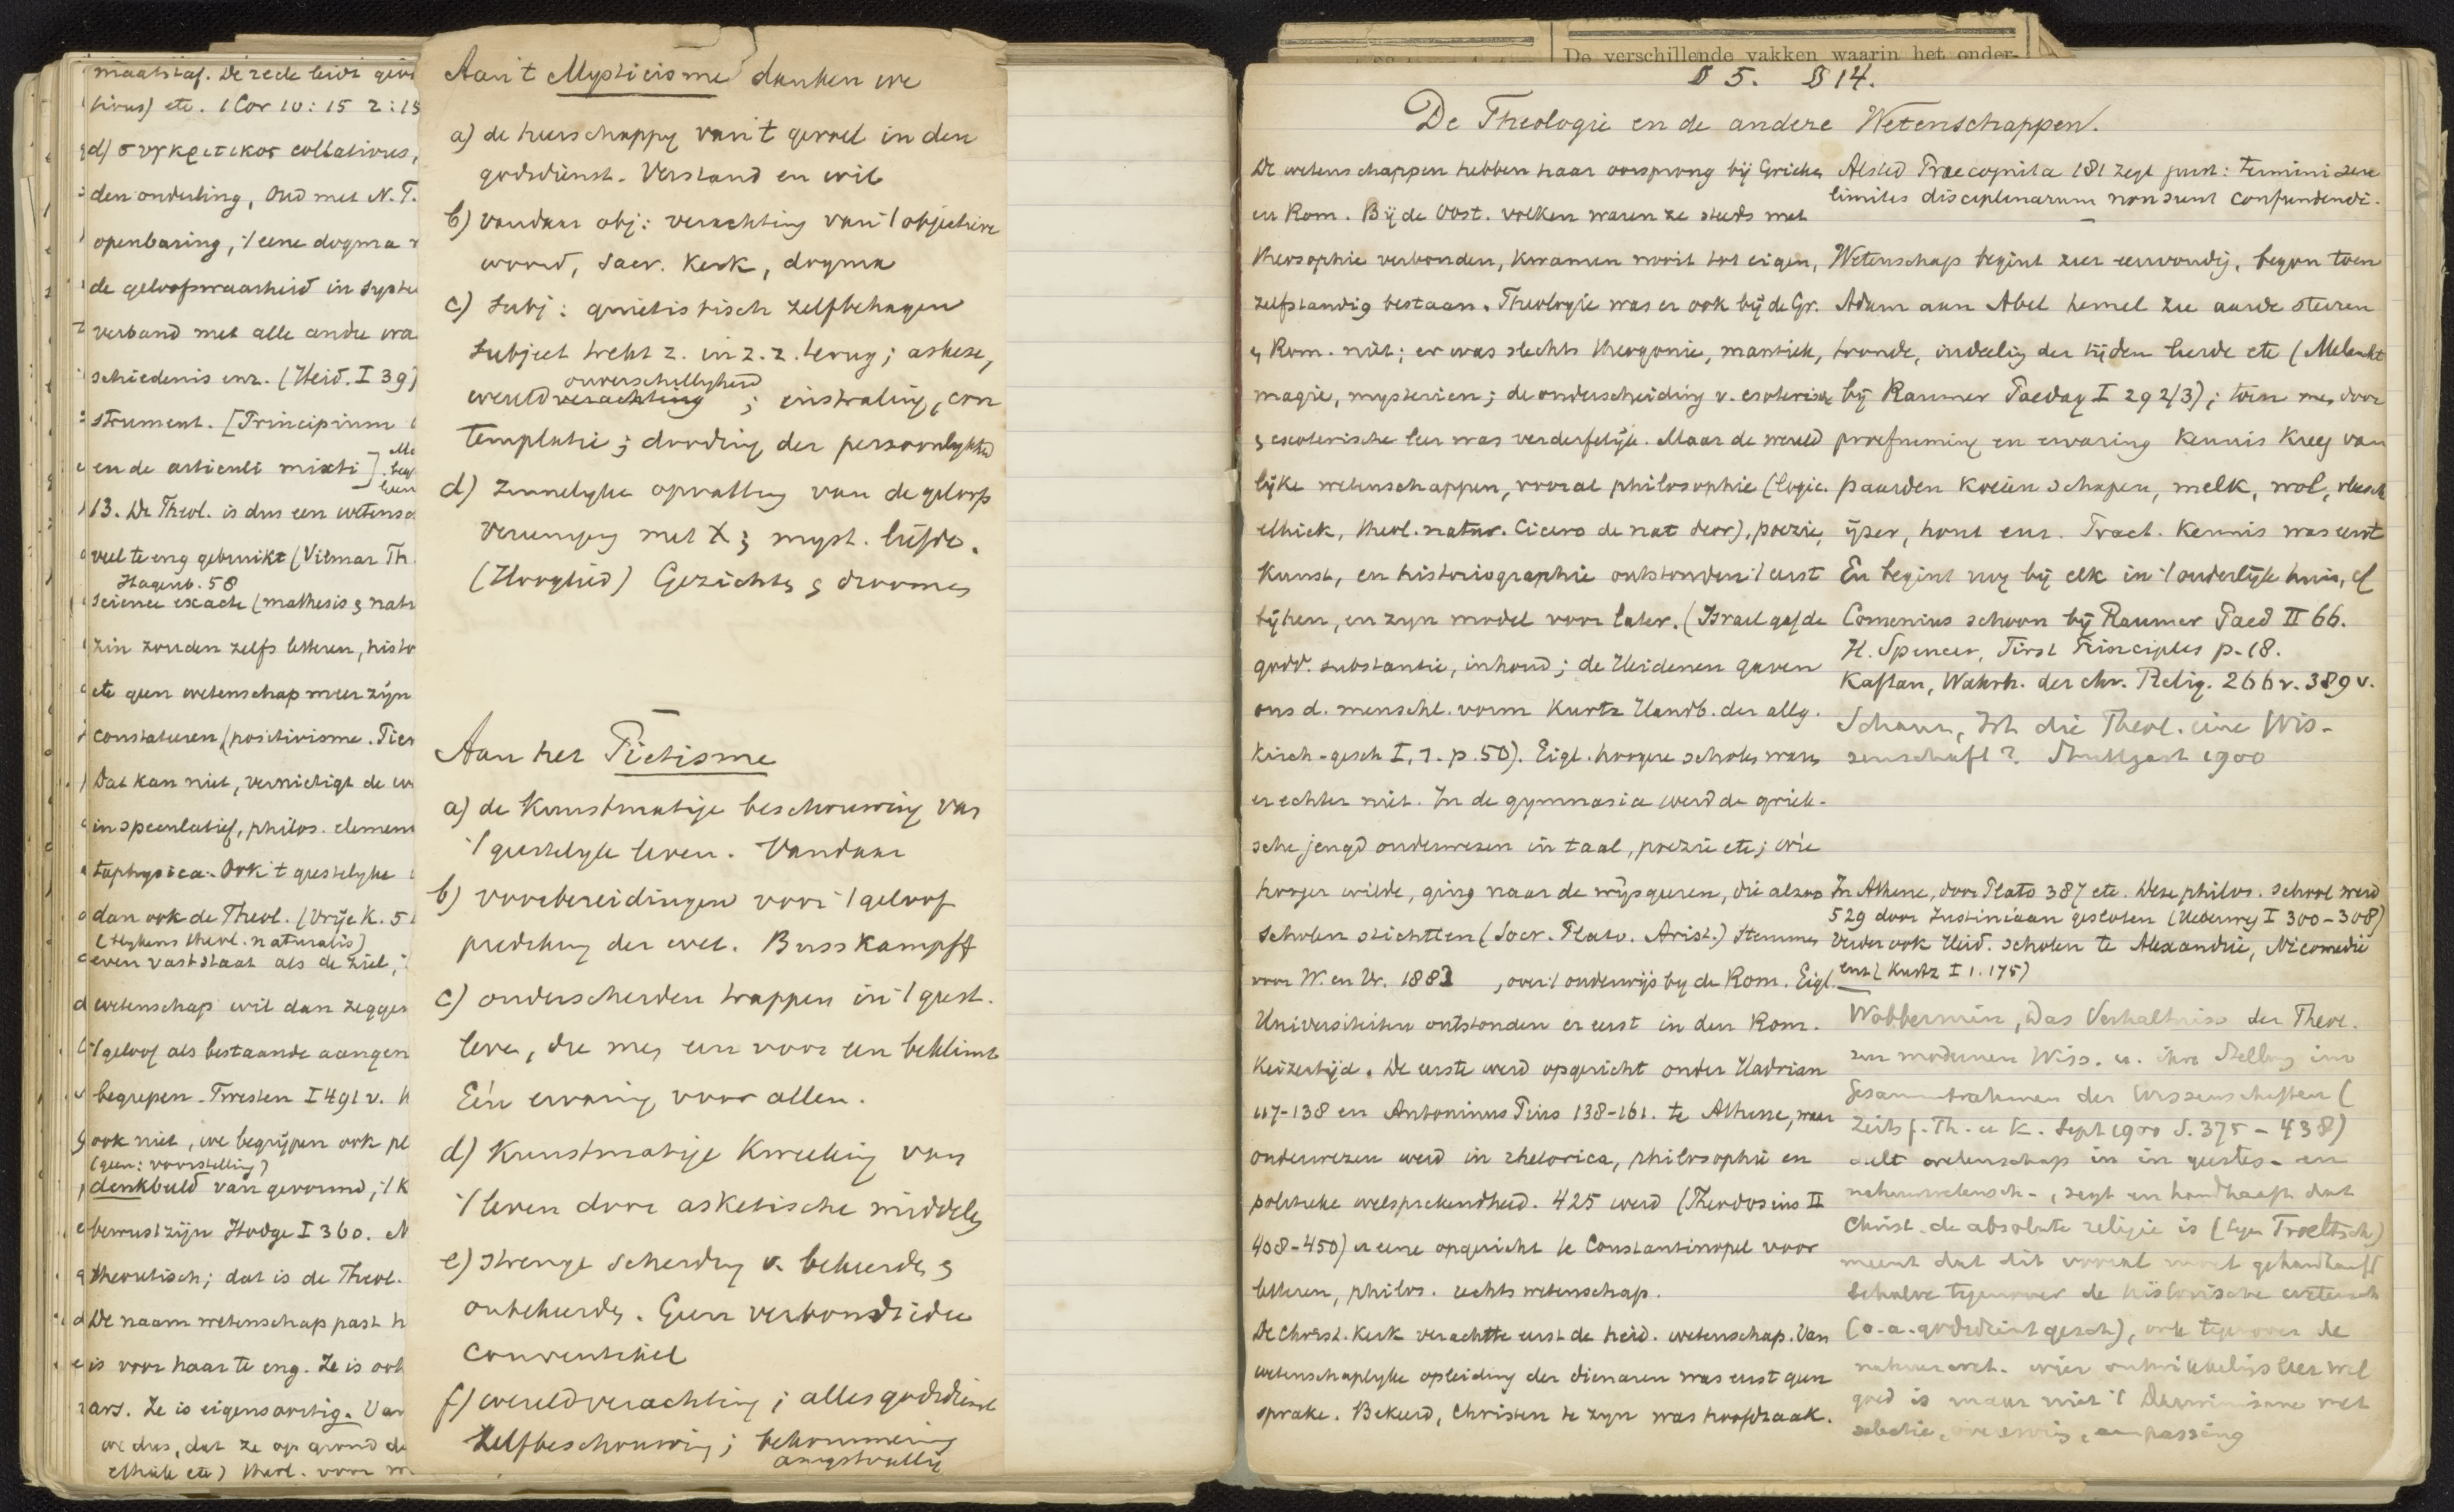 maatstaf. De rede leidt
1 Cor 10:15 2:15
d) συγκριτικος collativus,
den onderling, Oud met N.T.
openbaring, 't eene dogma
de geloofswaarheid in
verband met alle andre
schiedenis enz. (Heid. I 39)
strument. [Principium
en de articuli mixti]
13. De Theol. is dus een
veel te eng gebruikt (Vilmar Th.
Hagenb. 58
science exacte (mathesis &
zin zouden zelfs letteren,
etc geen wetenschap meer zijn
constateren (positivisme.
Dat kan niet, vernietigt de
in speculatief, philos.
taphysica. Ook 't geestelijke
dan ook de Theol. (Vrije K.
(theol. naturalis)
even vast staat als de ziel,
wetenschap wil dan zeggen
't geloof als bestaande
begrepen. Twesten I 491 v.
ook niet, we begrijpen ook
(geen: voorstelling)
denkbeeld van gevormd, 't
bewustzijn Hodge I 360.
theoretisch; dat is de Theol.
De naam wetenschap past
is voor haar te eng. Ze is ook
ars. Ze is eigensoortig.
we dus, dat ze op grond
ethiek etc) theol. voor
Aan 't Mysticisme danken we
a) de heerschappy van 't gevoel in den
godsdienst. Verstand en wil
b) vandaar obj: verachting van 't objectieve
woord, sacr. kerk, dogma
c) subj: quietistisch zelfbehagen
subject trekt z. in z.z. terug; askese,
onverschilligheid
wereldverachting; instraling, con
templatie; dooding der persoonlykheid
d) zinnelyke opvatting van de geloofs
vereeniging met X & myst. liefde.
(Hooglied) Gezichten & droomen
Aan het Piëtisme
a) de kunstmatige beschouwing van
't geestelyk leven. Vandaar
b) voorbereidingen voor 't geloof
prediking der wet. Busskampff
c) onderscheiden trappen in 't geest.
leven, die men een voor een beklimt
Eén ervaring voor allen.
d) Kunstmatige kweeking van
't leven door asketische middelen
e) strenge scheiding v. bekeerden &
onbekeerden. Geen verbondsidee
Conventikel
f) wereldverachting; alles godsdienst
zelfbeschouwing; bekommering
angstvallig
De verschillende vakken waarin het onder-
§ 5. § 14.
De Theologie en de andere Wetenschappen.
De wetenschappen hebben haar oorsprong bij Grieken
en Rom. Bij de Oost. volken waren ze steeds met
theosophie verbonden, kwamen nooit tot eigen,
zelfstandig bestaan. Theologie was er ook bij de Gr.
& Rom. niet; er was slechts theogonie, mantiek,
magie, mysterien; de onderscheiding v. esoterische
& exoterische leer was verderfelijk. Maar de wereld
lijke wetenschappen, vooral philosophie (logic.
ethiek, theol. natur. Cicero de nat deor), poezie,
kunst, en historiographie ontstonden 't eerst
bij hen, en zyn model voor later. (Israel gaf de
godd. substantie, inhoud; de Heidenen gaven
ons d. menschl. vorm Kurtz Handb. der allg.
Kirch-gesch I, 1. p. 50). Eigl. hoogere scholen waren
er echter niet. In de gymnasia werd de griek-
sche jeugd onderwezen in taal, poezie etc; wie
hooger wilde, ging naar de wijsgeeren, die alzoo
scholen stichtten (Socr. Plato. Arist.) Stemmen
voor W. en Vr. 1883, over 't onderwijs by de Rom. Eigl.
Universiteiten ontstonden er eerst in den Rom.
Keizertijd. De eerste werd opgericht onder Hadrian
117-138 en Antoninus Pius 138-161. te Athene, waar
onderwezen werd in rhetorica, philosophie en
politieke welsprekendheid. 425 werd (Theodosius II
408-450) er eene opgericht te Constantinopel voor
letteren, philos. rechtswetenschap.
De Christ. Kerk verachtte eerst de heid. wetenschap. Van
wetenschaplyke opleiding der dienaren was eerst geen
sprake. Bekeerd, Christen te zyn was hoofdzaak.
Alsted Praecognita 181 zegt juist: termini sive
limites disciplinarum non sunt confundendi.
Wetenschap begint zeer eenvoudig, begon toen
Adam aan Abel hemel zee aarde sterren
trande, indeeling der tijden leerde etc (Melancht
bij Raumer Paedag I 292/3); toen men door
proefneming en ervaring kennis kreeg van
paarden koeien schapen, melk, wol, vleesch
ijzer, hout enz. Pract. kennis was eerst
En begint nog bij elk in 't ouderlijke huis, cf
Comenius schoon bij Raumer Paed II 66.
H. Spencer, First Principles p. 18.
Kaftan, Wahrh. der chr. Relig. 266 v. 389 v.
Schanz, Ist die Theol. eine Wis-
senschaft? Stuttgart 1900
In Athene, door Plato 387 etc. Deze philos. school werd
529 door Justiniaan gesloten (Ueberweg I 300-308)
Verder ook Heid. scholen te Alexandrie, Nicomedie
enz (Kurtz I 1. 175)
Wobbermin, Das Verhältniss der Theol.
zur modernen Wiss. u. ihre Stellung im
Gesammtrahmen der Wissenschaften (
Zeits f. Th. u K. Sept 1900 S. 375-438)
deelt wetenschap in in geestes- en
natuurwetensch-, zegt en handhaaft dat
Christ. de absolute religie is (tegen Troeltsch)
meent dat dit vooral moet gehandhaafd
behalve tegenover de historische wetensch
(o.a. godsdienstgesch), ook tegenover de
natuurwet. wier ontwikkelingsleer wel
goed is maar niet 't Darwinisme met
selectie, aanpassing